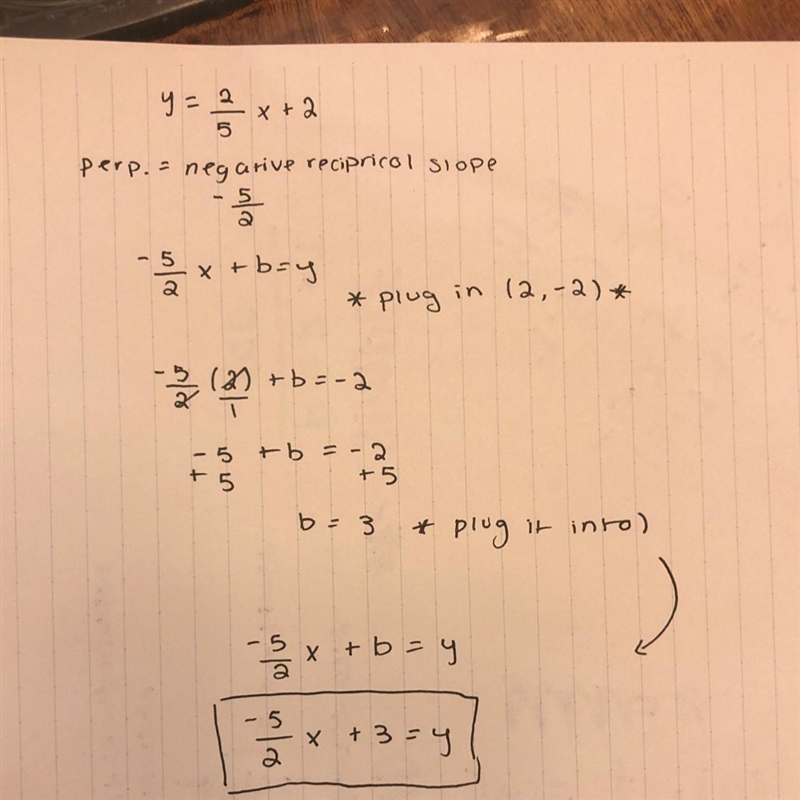 y = 2/5 x + 2
perp. = negative reciprical slope
- 5/2
- 5/2 x + b = y
* plug in (2, -2) *
- 5/2 (2)/1 + b = -2
- 5 + b = - 2
+ 5 + 5
b = 3 * plug it into)
- 5/2 x + b = y
- 5/2 x + 3 = y